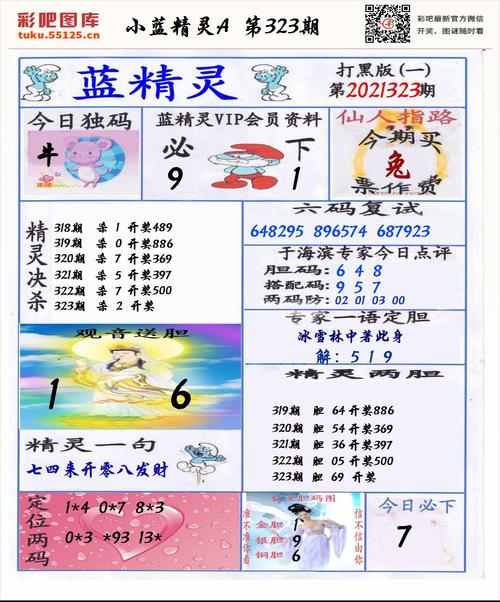 彩吧图库
tuku.55125.cn
小蓝精灵A 第323期
彩吧最新官方微信
开奖、图谜随时看
蓝精灵
打黑版(一)
第2021323期
今日独码
牛
蓝精灵VIP会员资料
必 下
9 1
仙人指路
今期买
兔
票作废
精灵决杀
318期 杀 1 开奖489
319期 杀 0 开奖886
320期 杀 7 开奖369
321期 杀 5 开奖397
322期 杀 7 开奖500
323期 杀 2 开奖
六码复试
648295 896574 687923
于海滨专家今日点评
胆码: 6 4 8
搭配码: 9 5 7
两码防: 02 01 03 00
专家一语定胆
冰雪林中著此身
解: 5 1 9
观音送胆
1 6
精灵两胆
319期 胆 64 开奖886
320期 胆 54 开奖369
321期 胆 36 开奖397
322期 胆 05 开奖500
323期 胆 69 开奖
精灵一句
七四来开零八发财
定位两码
1*4 0*7 8*3
0*3 *93 13*
美女胆码图
准不准你看
金胆 1
银胆 9
铜胆 6
信不信由你
今日必下
7